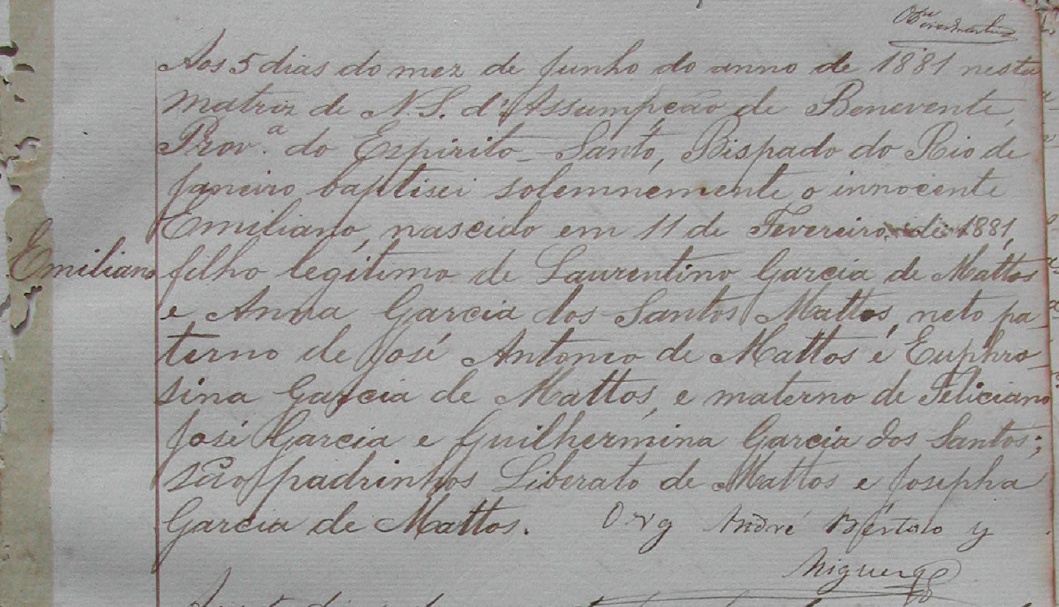 Aos 5 dias do mez de Junho do anno de 1881 nesta
Matriz de N.S. d'Assumpção de Benevente,
Prov.ª do Espirito-Santo, Bispado do Rio de
Janeiro baptisei solemnemente o innocente
Emiliano, nascido em 11 de Fevereiro de 1881,
Emiliano
filho legitimo de Laurentino Garcia de Mattos
e Anna Garcia dos Santos Mattos, neto pa-
terno de José Antonio de Mattos e Euphro-
sina Garcia de Mattos, e materno de Feliciano
José Garcia e Guilhermina Garcia dos Santos;
são padrinhos Liberato de Mattos e Josepha
Garcia de Mattos.
O Vig André Bértolo y